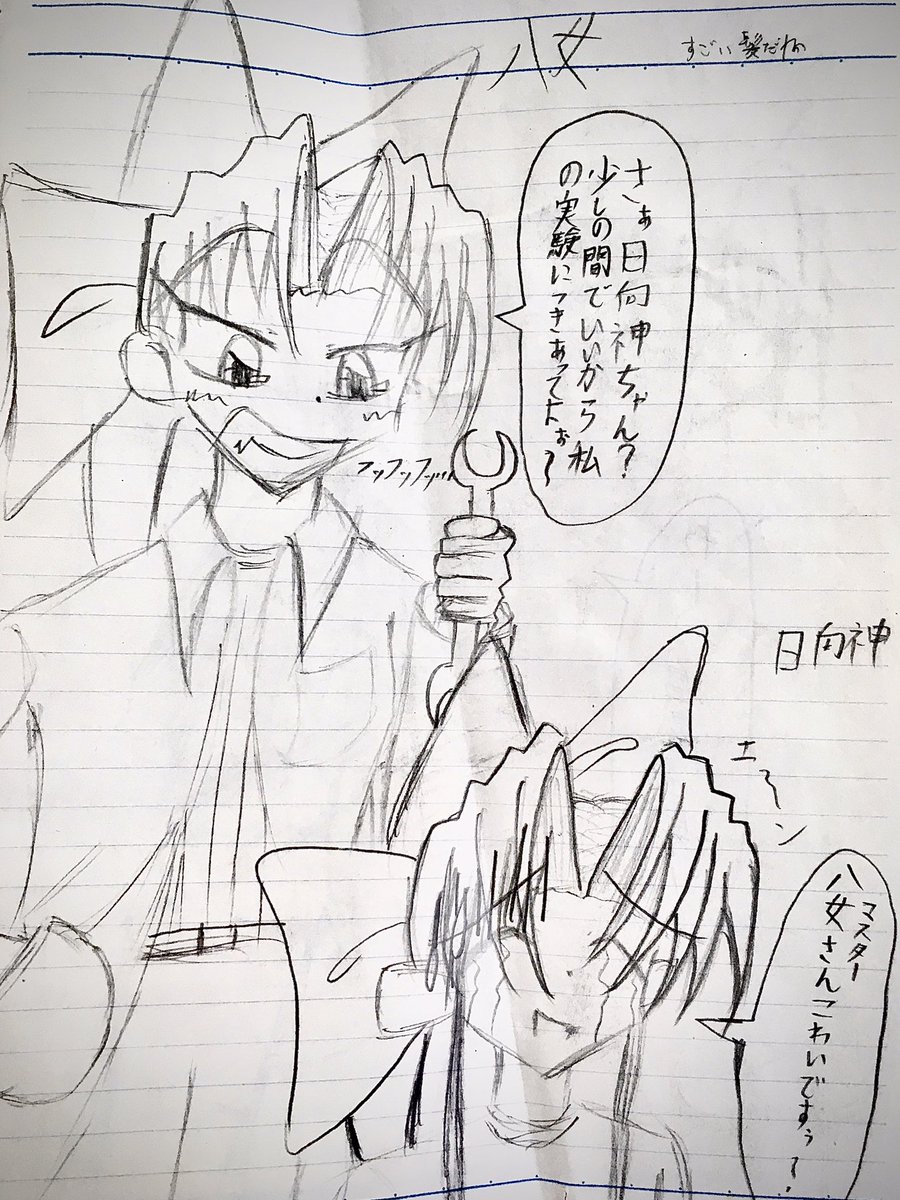 八女
すごい髪だわ
さぁ日向神ちゃん?
少しの間でいいから私
の実験につきあってよぉ~
フッフッフッ…
日向神
エ~ン
マスター
八女さんこわいですぅ~!